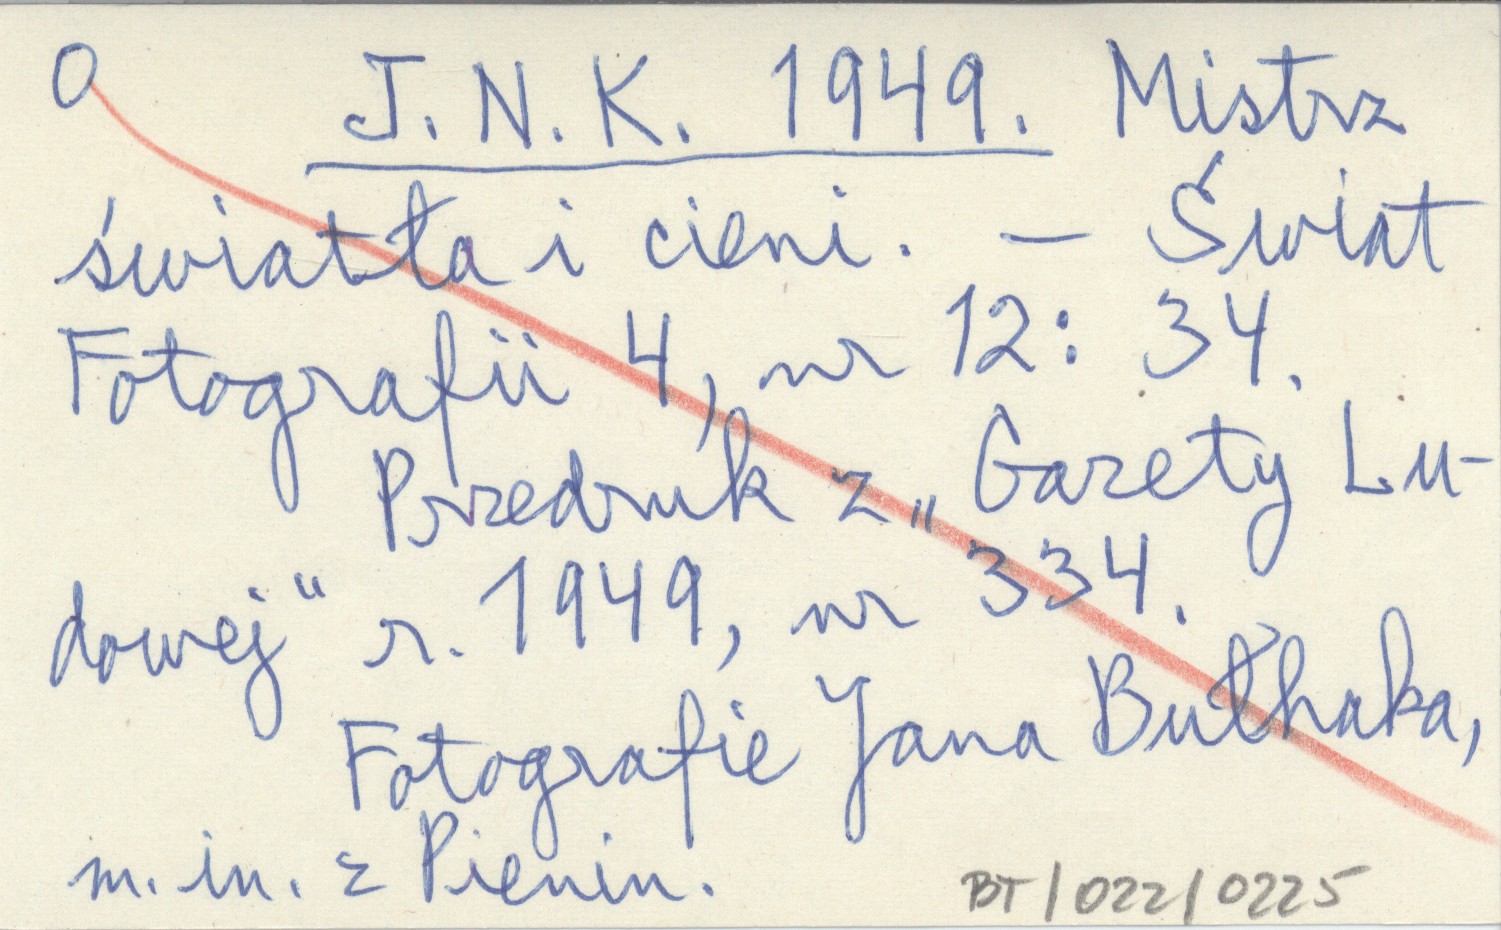 O J. N. K. 1949. Mistrz
światła i cieni. — Świat
Fotografii 4, nr 12: 34.
Przedruk z „Gazety Lu-
dowej" r. 1949, nr 334.
Fotografie Jana Bułhaka,
m. in. z Pienin.
BT/022/0225